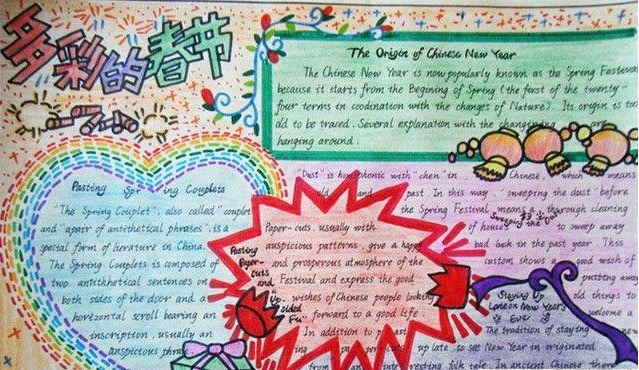 多彩的春节
The Origin of Chinese New Year
The Chinese New Year is now popularly known as the Spring Festival
because it starts from the Begining of Spring (the first of the twenty-
four terms in coodination with the changes of Nature). Its origin is too
old to be traced. Several explanation with the are
hanging around.
Pasting Spring Couplets
"The Spring Couplet", also called "couplet
and "apair of antithetical phrases", is a
special form of literature in China.
The Spring Couplets is composed of
two antithetical sentences on
both sides of the door and a
horizontal scroll bearing an
inscription, usually an
auspicious phrase
Pasting
Paper-
cuts
and
"Up
sided
Fu"
Paper-cuts, usually with
auspicious patterns, give a happy
and prosperous atmosphere of the
Festival and express the good
wishes of Chinese people looking
forward to a good life.
In addition to past
ing paper cuts
Sweeping the Dust
"Dust" is homophonic with "chen" in Chinese, which means
old and past. In this way, "sweeping the dust" before
the Spring Festival means a thorough cleaning
of houses to sweep away
bad luck in the past year. This
custom shows a good wish of
putting away
old things to
welcome a
new
Staying Up
Late on New Year's
Eve
The tradition of staying
up late to see New in originated
from an interesting folk tale. In ancient Chinese there